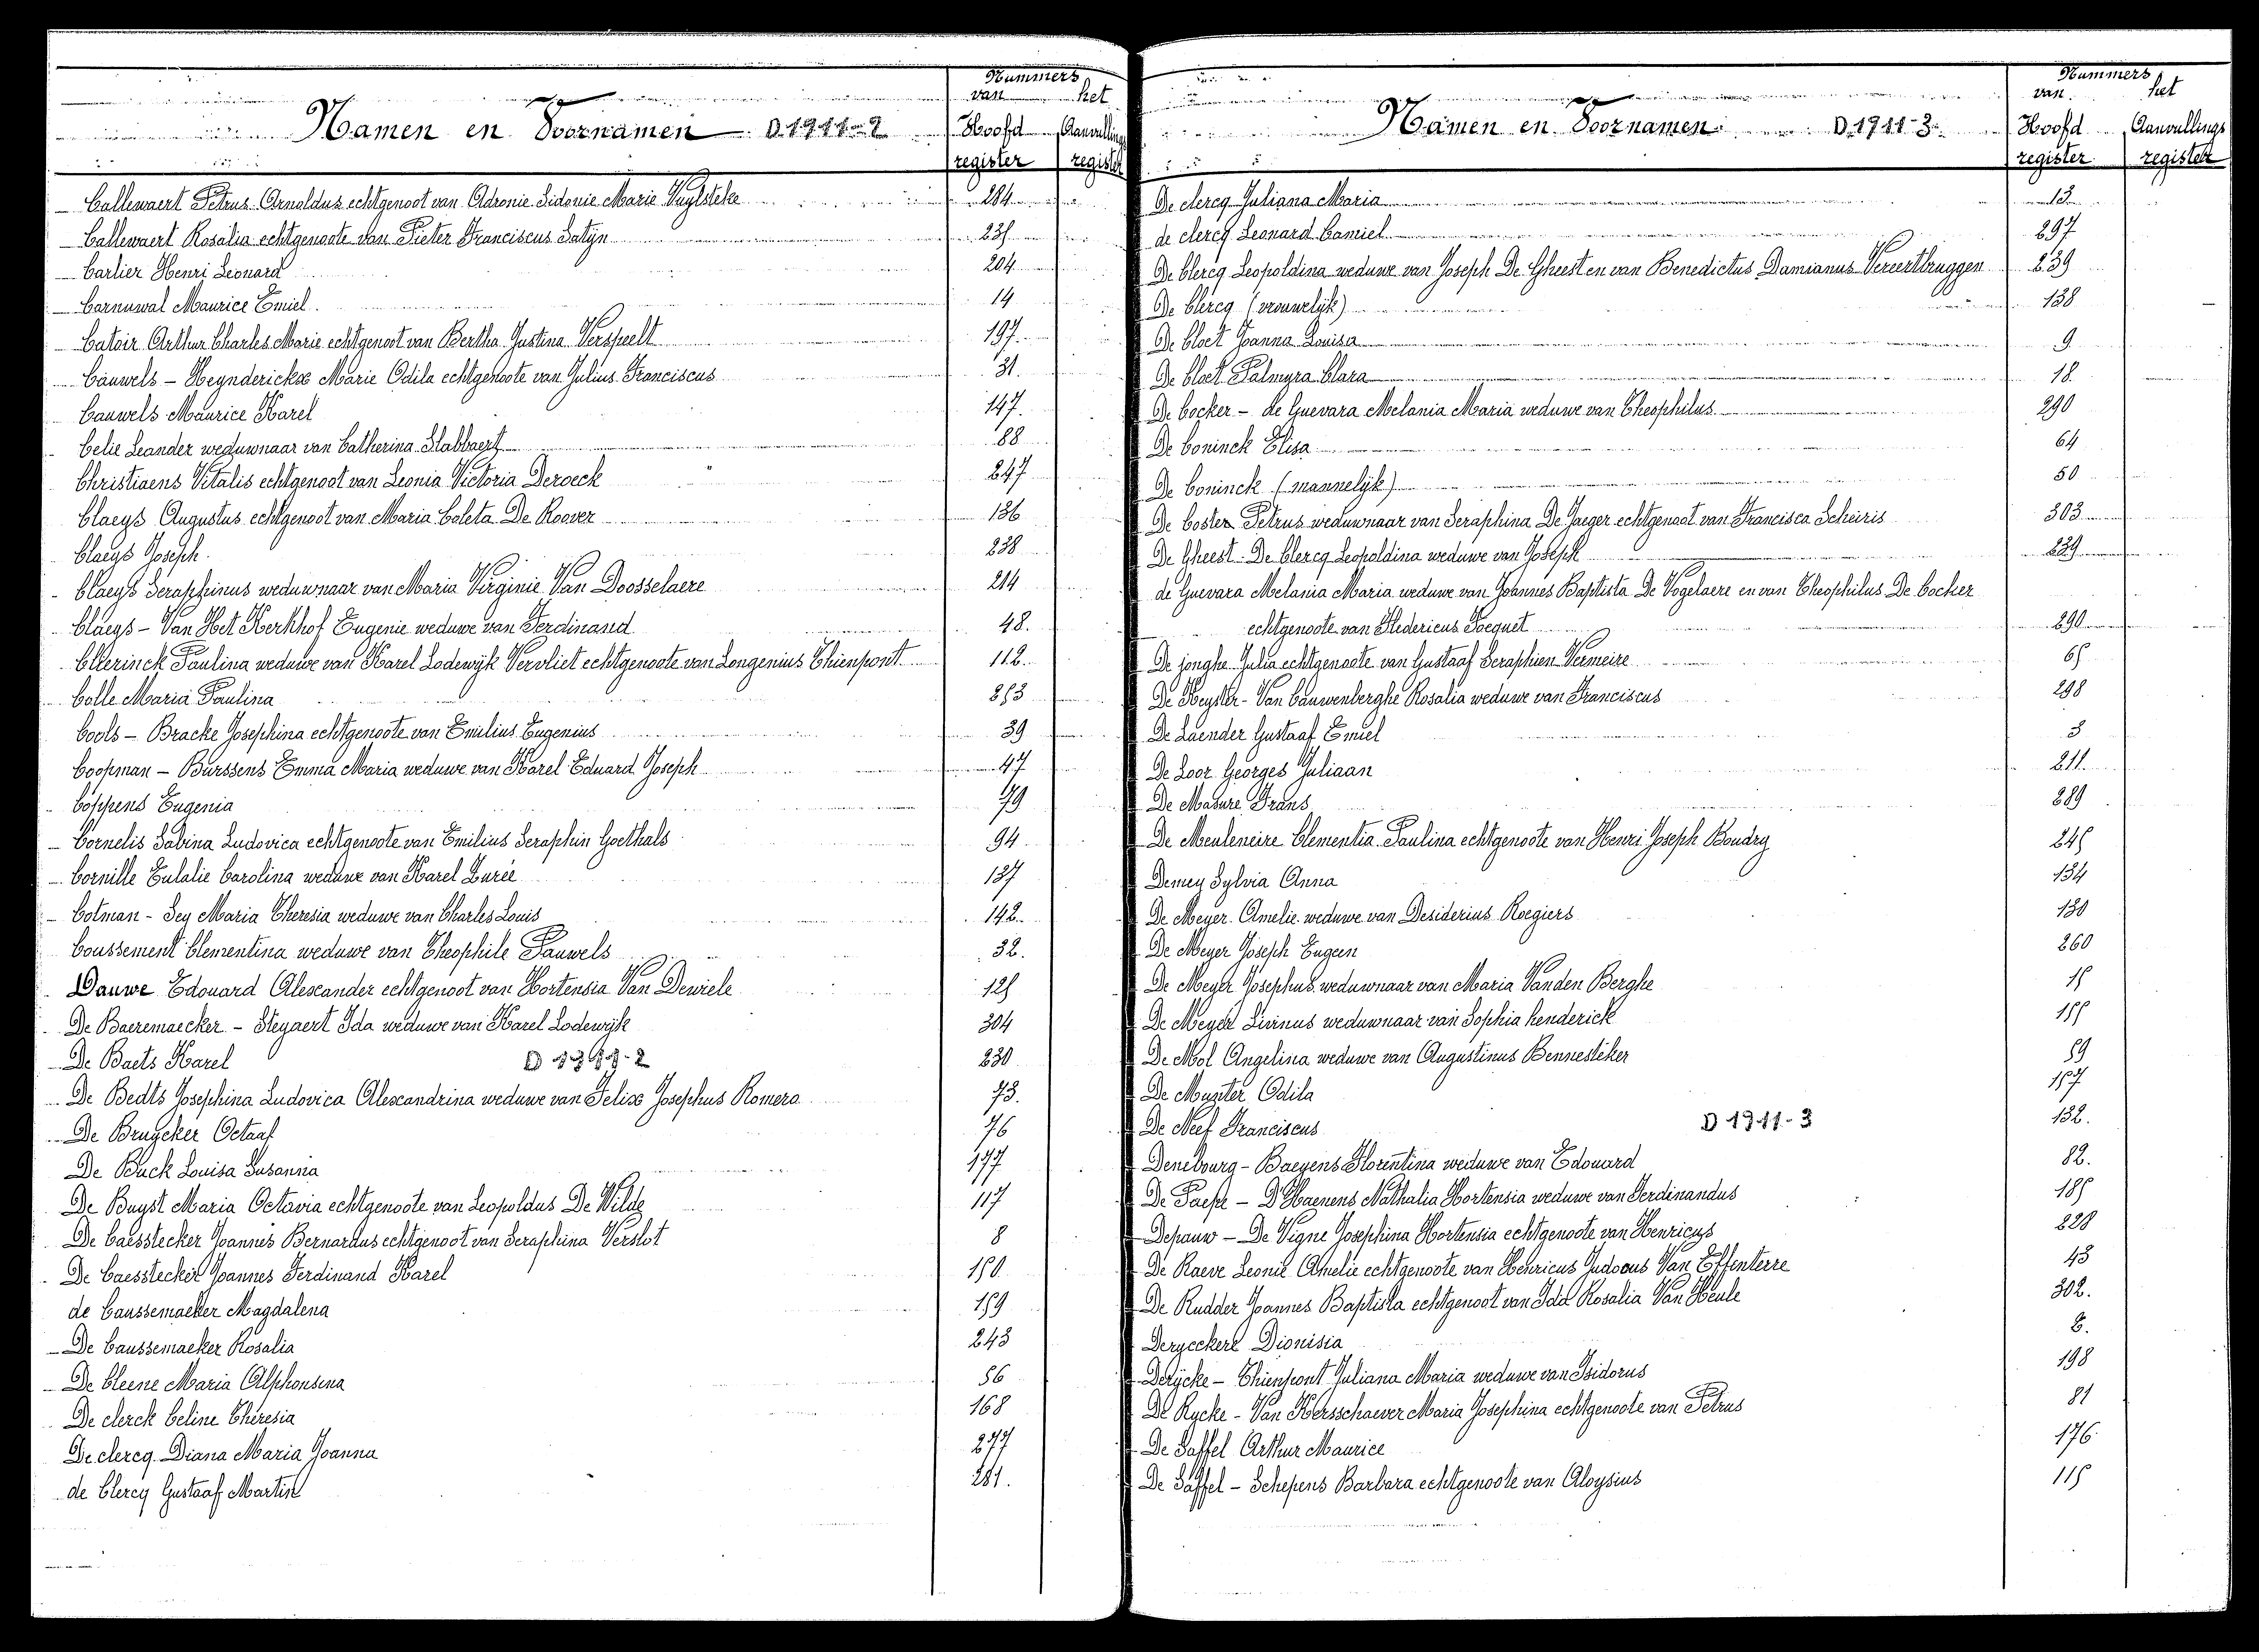 Nummers
van het
Namen en Voornamen D 1911-2 Hoofd Aanvullings
register register
Callewaert Petrus Arnoldus echtgenoot van Adronie Sidonie Marie Vuylsteke 284
Callewaert Rosalia echtgenoote van Pieter Franciscus Satijn 235
Carlier Henri Leonard 204
Carnuwal Maurice Emiel 14
Catoir Arthur Charles Marie echtgenoot van Bertha Justina Verspeelt 197
Cauwels - Heynderickx Marie Odila echtgenoote van Julius Franciscus 31.
Cauwels Maurice Karel 147.
Celie Leander weduwnaar van Catherina Slabbaert 88
Christiaens Vitalis echtgenoot van Leonia Victoria Deroeck 247
Claeys Augustus echtgenoot van Maria Coleta De Roover 136
Claeys Joseph. 238
Claeys Seraphinus weduwnaar van Maria Virginie Van Doosselaere 214
Claeys - Van Het Kerkhof Eugenie weduwe van Ferdinand 48.
Clterinck Paulina weduwe van Karel Lodewijk Vervliet echtgenoote van Longenius Thienpont 112.
Colle Maria Paulina 253
Cools - Bracke Josephina echtgenoote van Emilius Eugenius 39
Coopman - Burssens Emma Maria weduwe van Karel Eduard Joseph 47
Coppens Eugenia 79
Cornelis Sabina Ludovica echtgenoote van Emilius Seraphin Goethals 94
Cornille Eulalie Carolina weduwe van Karel Lurée 137
Cotman - Sey Maria Theresia weduwe van Charles Louis 142.
Coussement Clementina weduwe van Theophile Pauwels 32.
Dauwe Edouard Alexander echtgenoot van Hortensia Van Dewiele 125
De Baeremaecker - Steyaert Ida weduwe van Karel Lodewijk 304
De Baets Karel D 1911-2 230
De Bedts Josephina Ludovica Alexandrina weduwe van Felix Josephus Romera 73.
De Bruycker Octaaf 76
De Buck Louisa Susanna 177
De Buyst Maria Octavia echtgenoote van Leopoldus De Wilde 117
De Caesstecker Joannes Bernardus echtgenoot van Seraphina Verslot 8
De Caesstecker Joannes Ferdinand Karel 150
de Caussemaeker Magdalena 159
De Caussemaeker Rosalia 243
De Cleene Maria Alphonsina 56
De clerck Celine Theresia 168
De clercq Diana Maria Joanna 277
de Clercq Gustaaf Martin 281.
Nummers
van het
Namen en Voornamen D 1911-3 Hoofd Aanvullings
register register
De clercq Juliana Maria 13
de clercq Leonard Camiel 297
De Clercq Leopoldina weduwe van Joseph De Gheest en van Benedictus Damianus Vereertbruggen 239
De Clercq (vrouwelijk) 138
De Cloet Joanna Louisa 9
De Cloet Palmyra Clara 18
De Cocker - de Guevara Melania Maria weduwe van Theophilus 290
De Coninck Elisa 64
De Coninck (mannelijk) 50
De Coster Petrus weduwnaar van Seraphina De Jaeger echtgenoot van Francisca Scheiris 303
De Gheest - De Clercq Leopoldina weduwe van Joseph 239
de Guevara Melania Maria weduwe van Joannes Baptista De Vogelaere en van Theophilus De Cocker
echtgenoote van Fredericus Focquet 290
De jonghe Julia echtgenoote van Gustaaf Seraphien Vermeire 65
De Keyster - Van Cauwenberghe Rosalia weduwe van Franciscus 298
De Laender Gustaaf Emiel 3
De Loor Georges Juliaan 211
De Masure Frans 289
De Meuleneire Clementia Paulina echtgenoote van Henri Joseph Boudry 245
Demey Sylvia Anna 134
De Meyer Amelie weduwe van Desiderius Roegiers 130
De Meyer Joseph Eugeen 260
De Meyer Josephus weduwnaar van Maria Vanden Berghe 15
De Meyer Livinus weduwnaar van Sophia henderick 155
De Mol Angelina weduwe van Augustinus Bennesteker 59
De Munter Odila 157
De Neef Franciscus D 1911-3 132.
Denebourg - Baeyens Florentina weduwe van Edouard 82.
De Paepe - D'Haenens Nathalia Hortensia weduwe van Ferdinandus 185
Depauw - De Vigne Josephina Hortensia echtgenoote van Henricus 228
De Raeve Leonie Amelie echtgenoote van Henricus Judocus Van Effenterre 43
De Rudder Joannes Baptista echtgenoot van Ida Rosalia Van Heule 302.
Deryeckere Dionisia 6.
Derijcke - Thienpont Juliana Maria weduwe van Isidorus 198
De Rycke - Van Kersschaever Maria Josephina echtgenoote van Petrus 81
De Saffel Arthur Maurice 176
De Saffel - Schepens Barbara echtgenoote van Aloysius 115